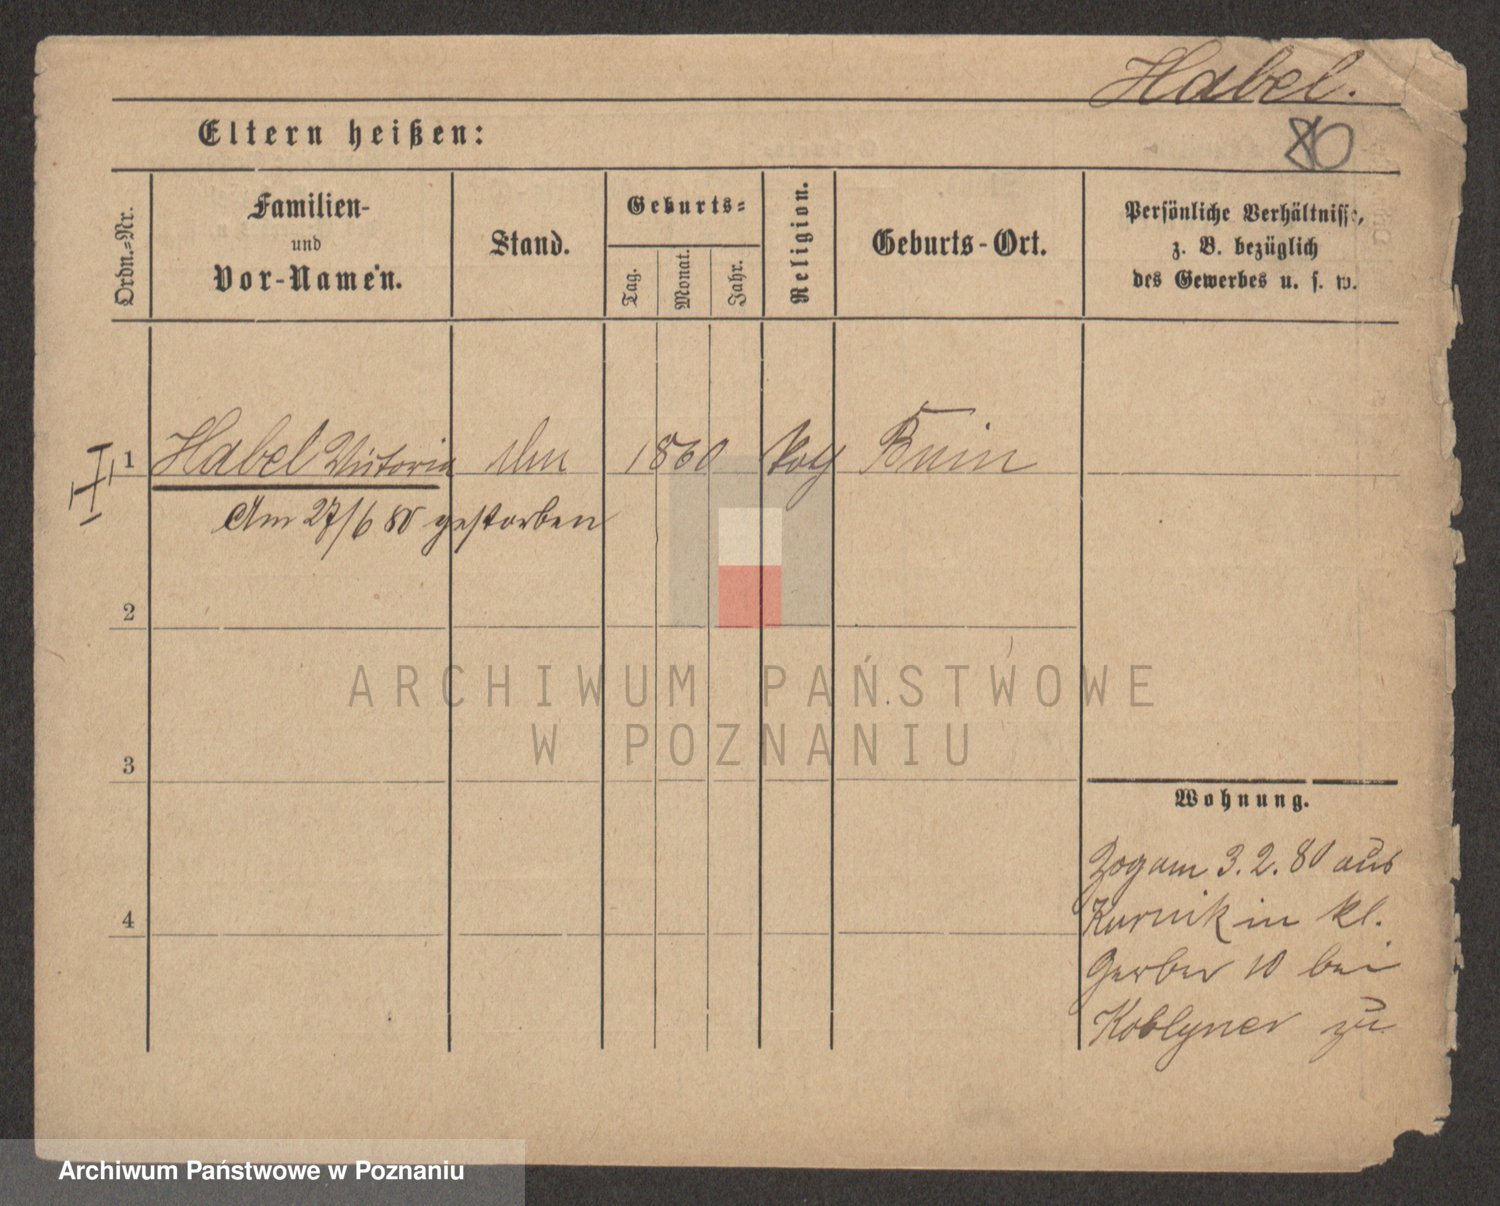 Habel.
Eltern heißen:
80
Ordn.=Nr.
Familien-
und
Vor-Namen.
Stand.
Geburts=
Tag.
Monat.
Jahr.
Religion.
Geburts-Ort.
Persönliche Verhältnisse,
z. B. bezüglich
des Gewerbes u. s. w.
1 Habel Victoria 1860 Bnin
Am 27/6 80 gestorben
2
3
4
Wohnung.
Zog am 3.2.80 aus
Kurnik in kl.
Gerber 10 bei
Koblyner zu
ARCHIWUM PAŃSTWOWE
W POZNANIU
Archiwum Państwowe w Poznaniu